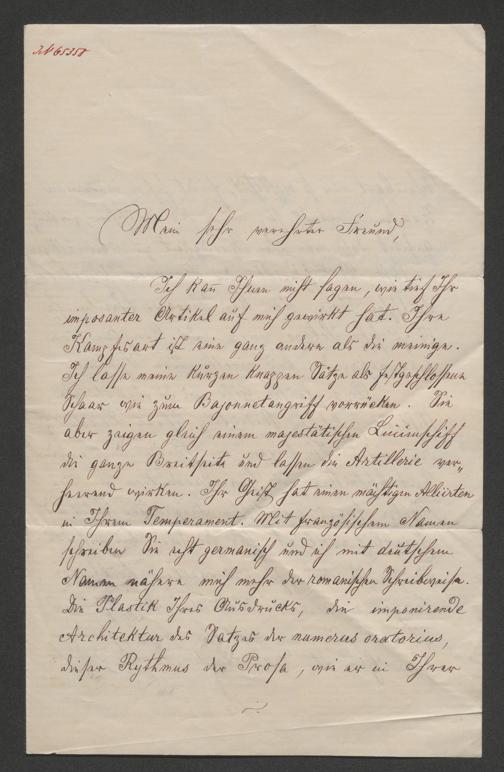 IN 65358
Mein sehr verehrter Freund,
Ich kan̄ Ihnen nicht sagen, wie tief Ihr
imposanter Artikel auf mich gewirkt hat. Ihre
Kampfesart ist eine ganz andere als die meinige.
Ich lasse meine kurzen knappen Sätze als festgeschlossene
Schaar wie zum Bajonnetangriff vorrücken. Sie
aber zeigen gleich einem majestätischen Linienschiff
die ganze Breitseite und lassen die Artillerie ver„
heerend wirken. Ihr Geist hat einen mächtigen Alliirten
in Ihrem Temperament. Mit französischem Namen
schreiben Sie echt germanisch und ich mit deutschem
Namen nähere mich mehr der romanischen Schreibweise.
Die Plastik Ihres Ausdrucks, die imponirende
Architektur des Satzes der numerus oratorius,
dieser Rythmus der Prosa, wie er in Ihrer